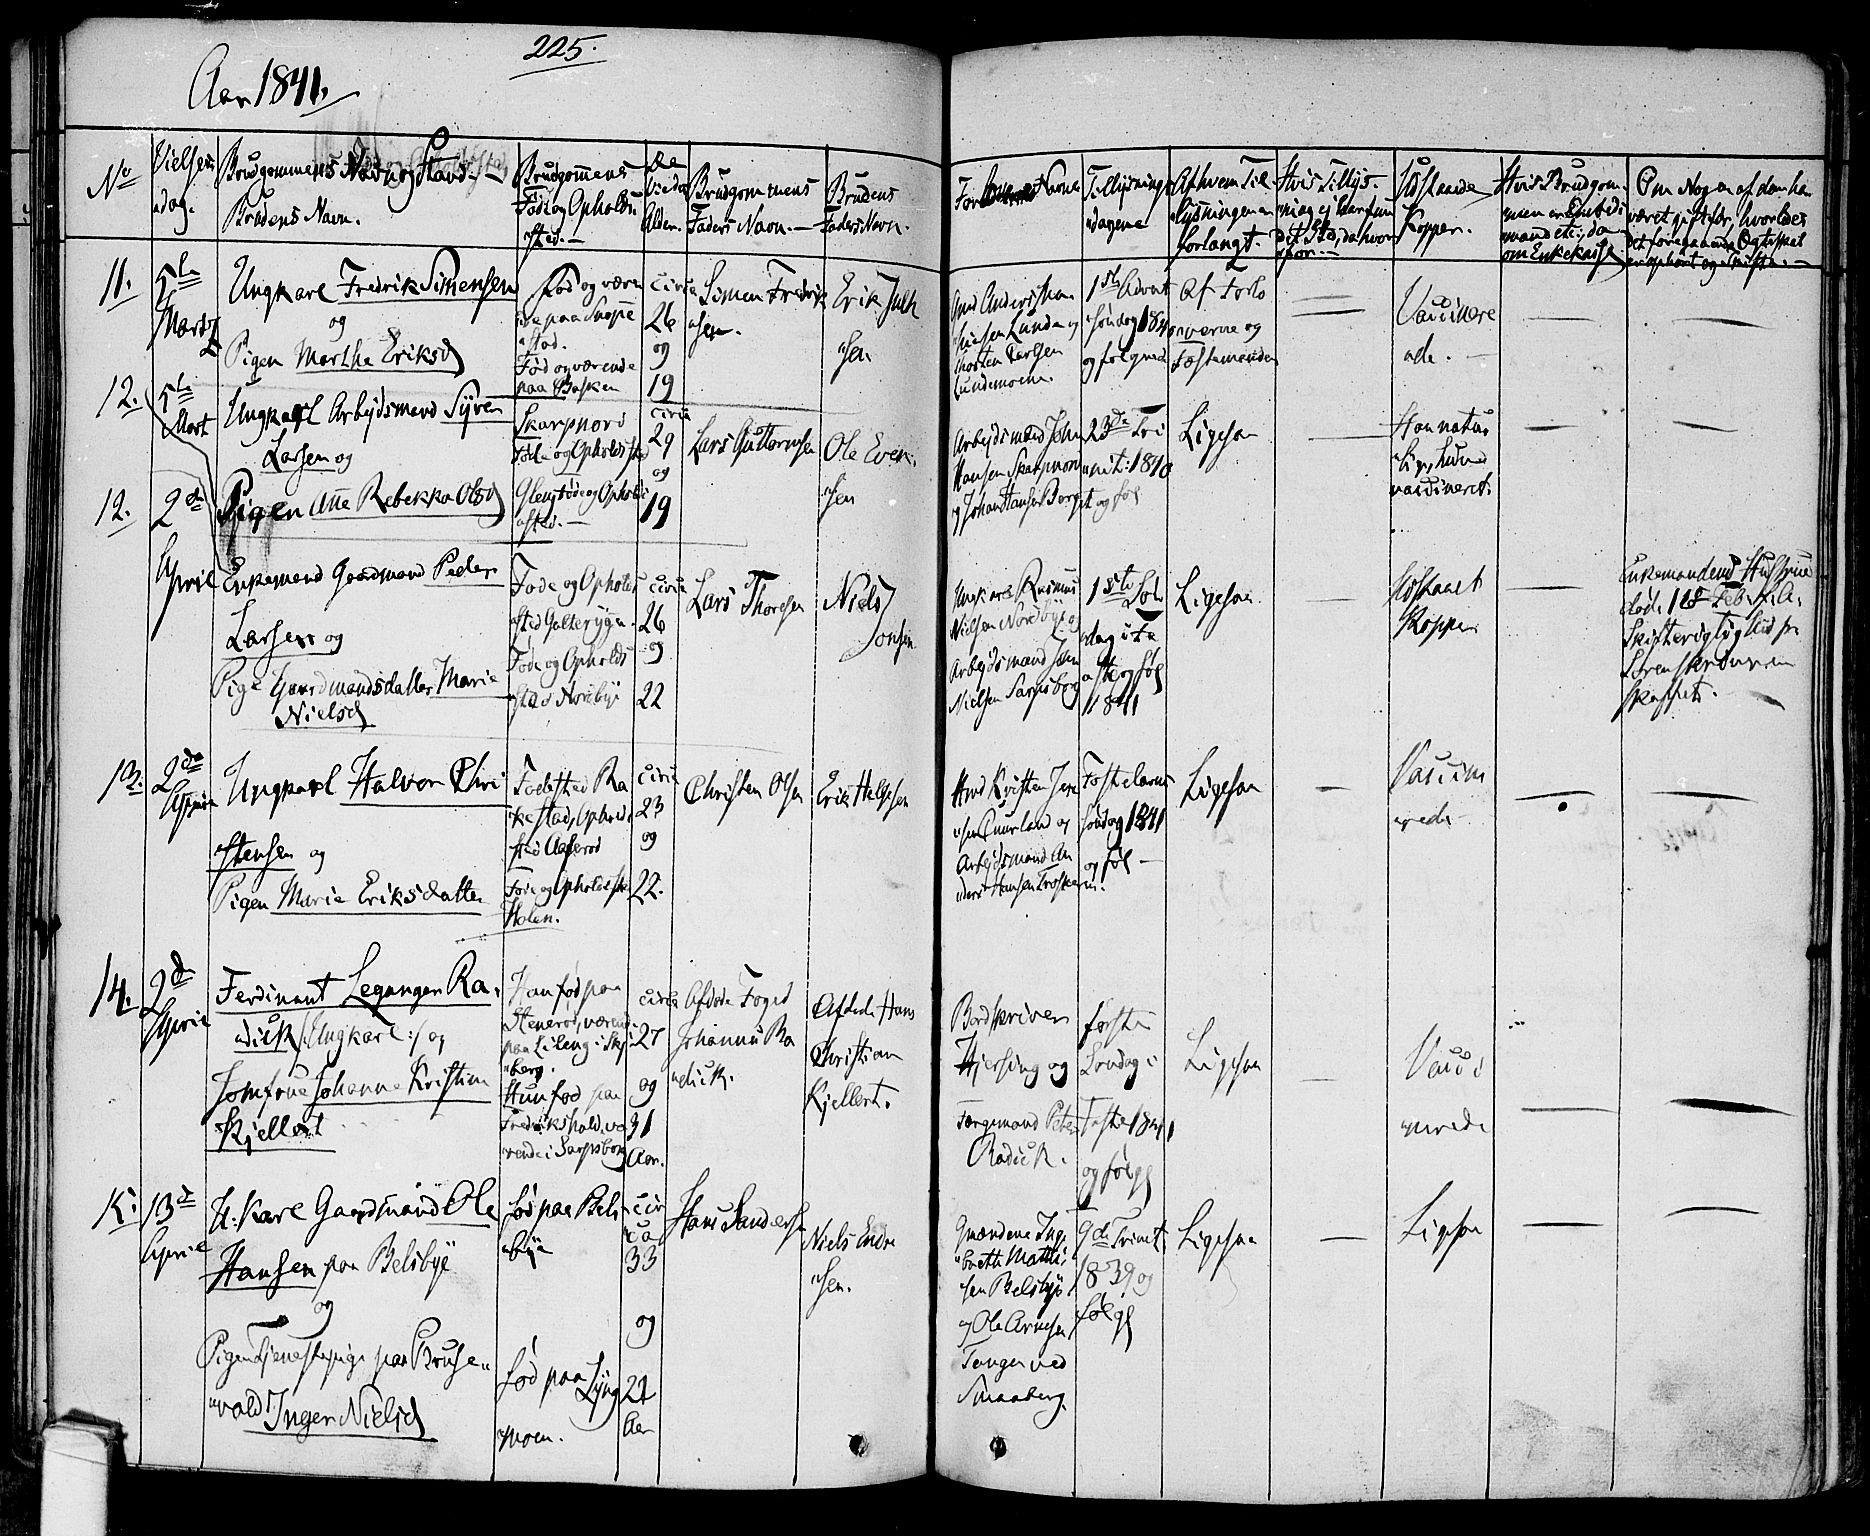 225.
Aar 1841.
No
Vielses
dag.
Brudgommens Navn og Stand
Brudens Navn.
Brudgommens
Føde og Opholds
sted.
De
Viedes
Alder.
Brudgommens
Faders Navn.
Brudens
Faders Navn.
Forlovernes Navne
Tillysnings
dagene
Af hvem Til
lysningen er
forlangt.
Hvis Tillys-
ning ej har fun
det Sted, da hvor
for.
Udstaaede
Kopper.
Hvis Brudgom
men er Embeds
mand etc.; da
om Enkekasse
Om Nogen af dem ha
været gift før, hvorledes
det foregaaende Ægteskab
er ophørt og Skifte.
11.
5te
Marts
Ungkarl Fredrik Simensen
og
Pigen Marthe Eriksd
Fød og være
nde paa
stad.
Fød og værende
paa
circa
26
og
19
Simen Fredrik
sen.
Erik
sen
Lunde og
Morten Carlsen
Lundemoen.
1ste Advent
Søndag 1840
og følgende
Af Forlo
verne og
Vaccinere
ade.
12.
5te
Mart
Ungkarl Arbejdsmand Syver
Larsen og
Skarpnord
Føde og Opholdssted
circa
29
og
Lars Guttormsen
Ole Even
sen
Arbejdsmand John
Hansen Skarpnord
og Johan Hansen Borge
23de Tri
nit: 1840
og føl
Ligesaa
Han natur
lige, hun
vaccineret.
12.
2de
April
Pigen Ane Rebekka Olsd
Føde og Opholds
sted.
19
Enkemand Gaardmand Peder
Larsen og
Pige Gaardmandsdatter Marie
Nielsd
Føde og Opholds
sted
Føde og Opholds
sted Nordbye
circa
26
og
22
Lars Thoresen
Niels
Jonsen
Ungkarl Rasmus
Nielsen Nordbye og
Arbejdsmand John
Nielsen Sarpsborg
1ste Søn
dag i Fa
ste og føl
1841
Ligesaa
Udstaaet
Kopper
Enkemandens Hustrue
død 18 Feb.
13.
2de
April
Ungkarl Halvor Chri
stensen og
Pigen Marie Eriksdatter
Fødested Ra
kestad, Opholds
sted
Føde og Opholdssted
Holen.
circa
23
og
22.
Christen Olsen
Erik Helgesen
Kristen Jen
sen Buurland og
Arbejdsmand An
ders Hansen
Fastelavns
Søndag 1841
og føl
Ligesaa
Vaccine
rede
14.
2de
April
Ferdinant Legangen Ra
dick /: Ungkarl :/ og
Jomfrue Johanne Kristine
Kjellert
Han fød paa
Stenerød, værende
paa Lileng i Skje
berg.
Hun fød paa
Fredrikshald, væ
rende i Sarpsborg
circa
27
og
31
Aar.
Afdøde Foged
Johannes Ra
dick.
Afdøde Hans
Christian
Kjellert.
Bordskriver
Hjersing og
Færgemand Peter
Radick.
første
Søndag i
Faste 1841
og følge
Ligesaa
Vacci
nerede
15.
13de
April
U: Karl Gaardmand Ole
Hansen paa Belsbye
og
Pigen Tjenestepige paa Bruse
vold Inger Nielsd
Fød paa Bels
bye
fød paa Lyng
moen.
cir
ca
33
og
21
Aar
Hans Andersen
Niels Endre
sen.
Gmændene Ing
breth Mathi
sen Belsbye
og Ole Arnesen
Tangen ved
Smaaberg.
9de Trinit.
1839 og
følge
Ligesaa
Ligesaa